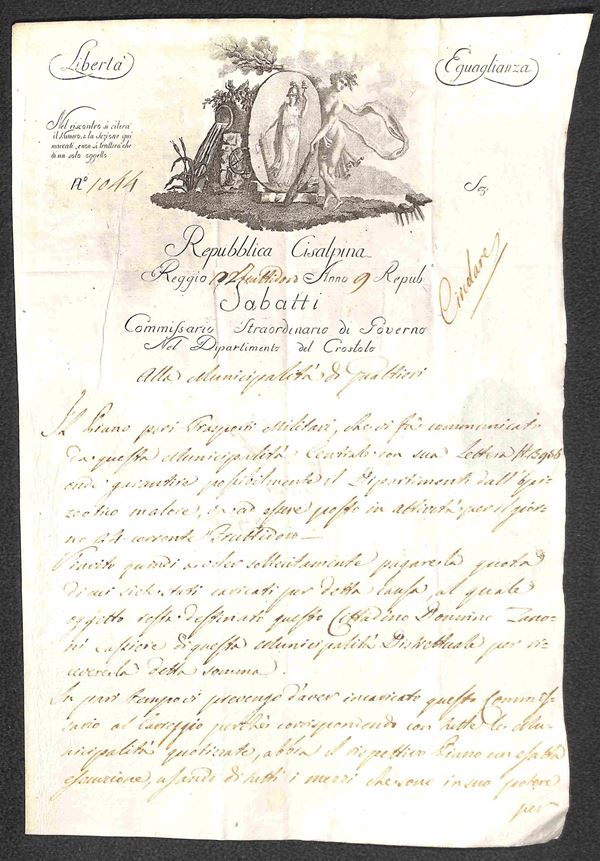 Libertà
Eguaglianza
Nel riscontro si citerà
il Numero, e la Sezione qui
marcati, e non si tratterà che
di un solo oggetto
N.º 1044
Sez.
Repubblica Cisalpina
Reggio Fruttidoro Anno 9 Repub
Sabatti
Commissario Straordinario di Governo
Nel Dipartimento del Crostolo
Alla Municipalità di Gualtieri
Il Piano pei Trasporti Militari, che vi fù comunicato
da questa Municipalità Centrale con sua Lettera
onde garantire possibilmente il Dipartimento dall'Epi-
zootico malore, và ad essere posto in attività per il gior-
no 24 corrente Fruttidoro
quindi a sollecitamente pagare la quota
di cui siete stati caricati per detta causa, al quale
oggetto resta destinato questo Cittadino Domenico Zano-
ni Cassiere di questa Municipalità Distrettuale per ri-
cevere la detta somma.
In pari tempo vi prevengo d'aver incaricato questo Commes-
sario al Carreggio perchè corrispondendo con tutte le Mu-
nicipalità quotizzate, abbia il rispettivo Piano un esatta
esecuzione, usando di tutti i mezzi che sono in suo potere
per